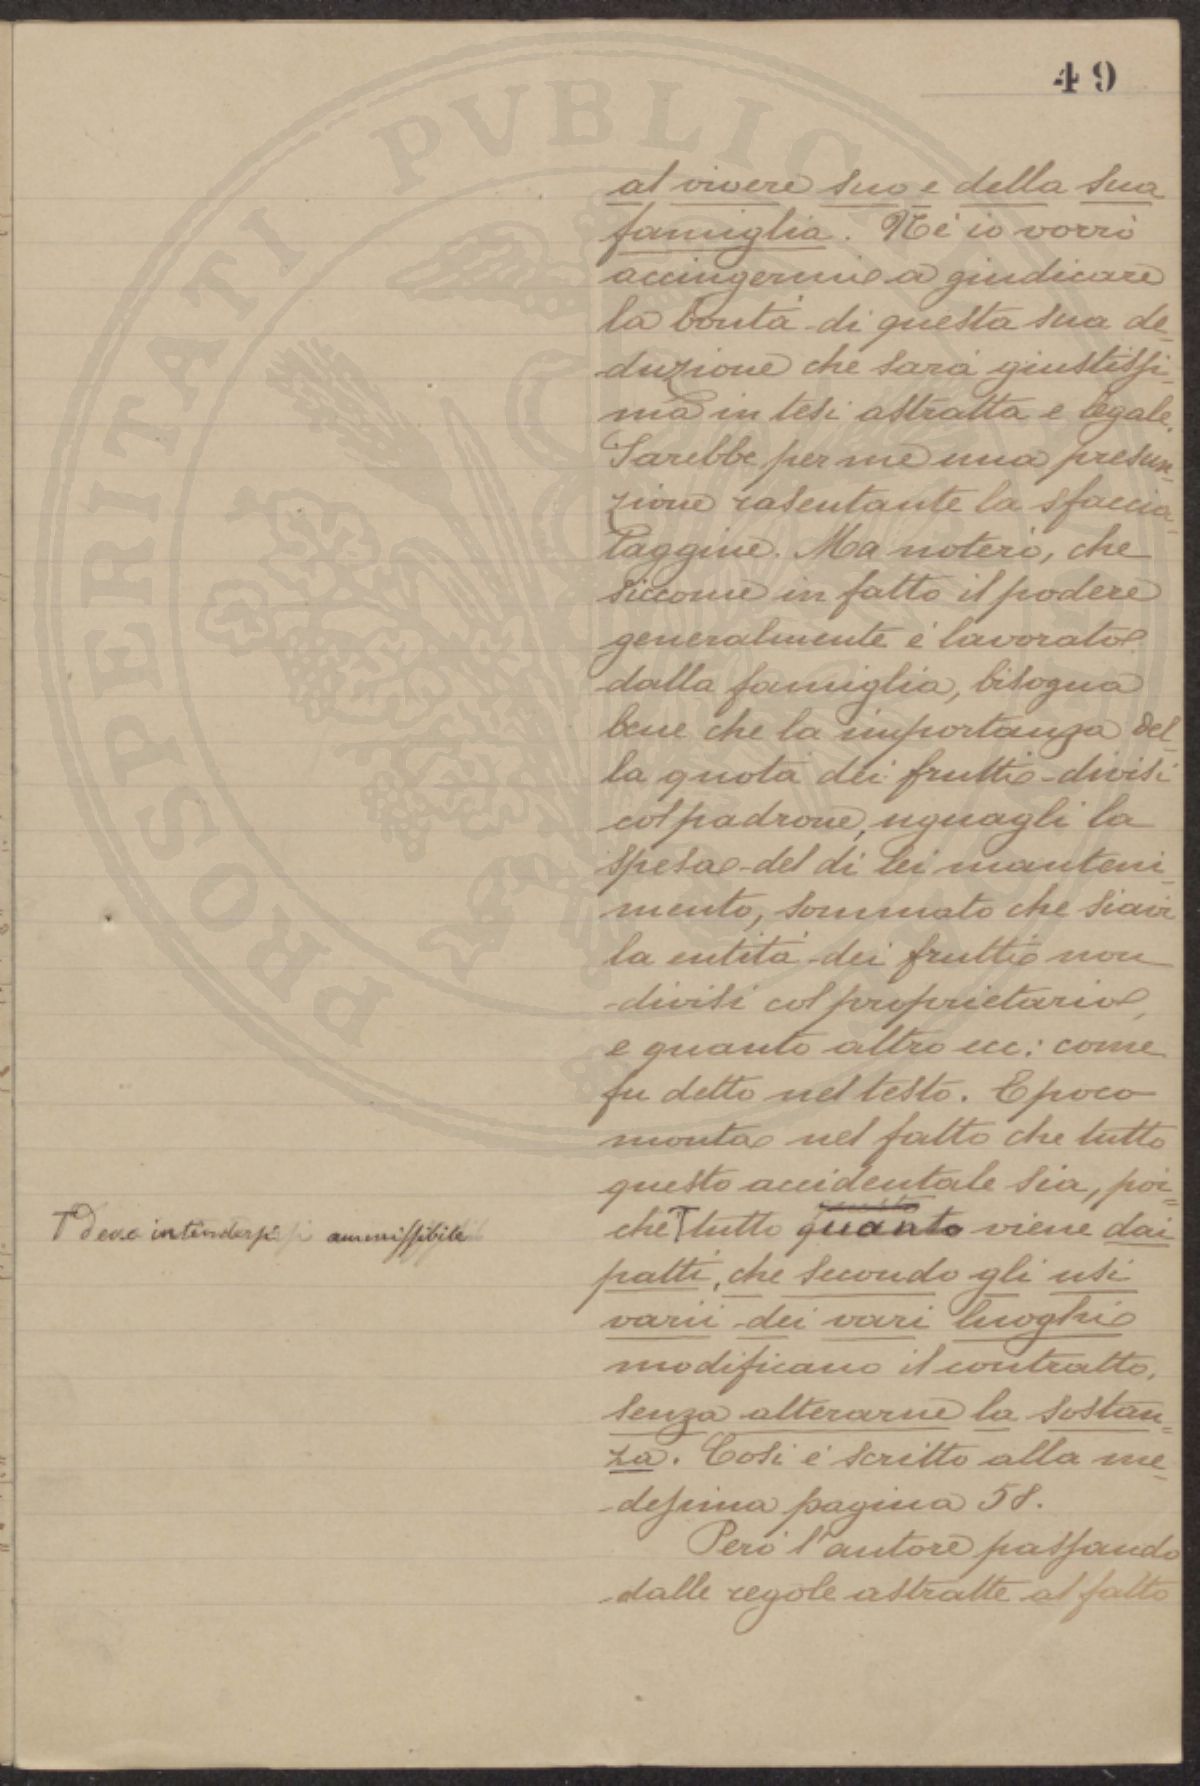 49
al vivere suo e della sua
famiglia. Né io vorrò
accingermi a giudicare
la bontà di questa sua de-
duzione che sarà giustissi-
ma in tesi astratta e legale.
Sarebbe per me una presun-
zione rasentante la sfaccia-
taggine. Ma noterò, che
siccome in fatto il podere
generalmente è lavorato
dalla famiglia, bisogna
bene che la importanza del-
la quota dei frutti divisi
col padrone, uguagli la
spesa del di lei manteni-
mento, sommato che siavi
la entità dei frutti non
divisi col proprietario,
e quanto altro ecc: come
fu detto nel testo. E poco
monta nel fatto che tutto
questo accidentale sia, poi-
chè T tutto quanto viene dai
T deve intendersi ammissibile
patti, che secondo gli usi
varii dei vari luoghi
modificano il contratto,
senza alterarne la sostan-
za. Così è scritto alla me-
desima pagina 58.
Però l'autore passando
dalle regole astratte al fatto
PROSPERITATI PVBLICAE